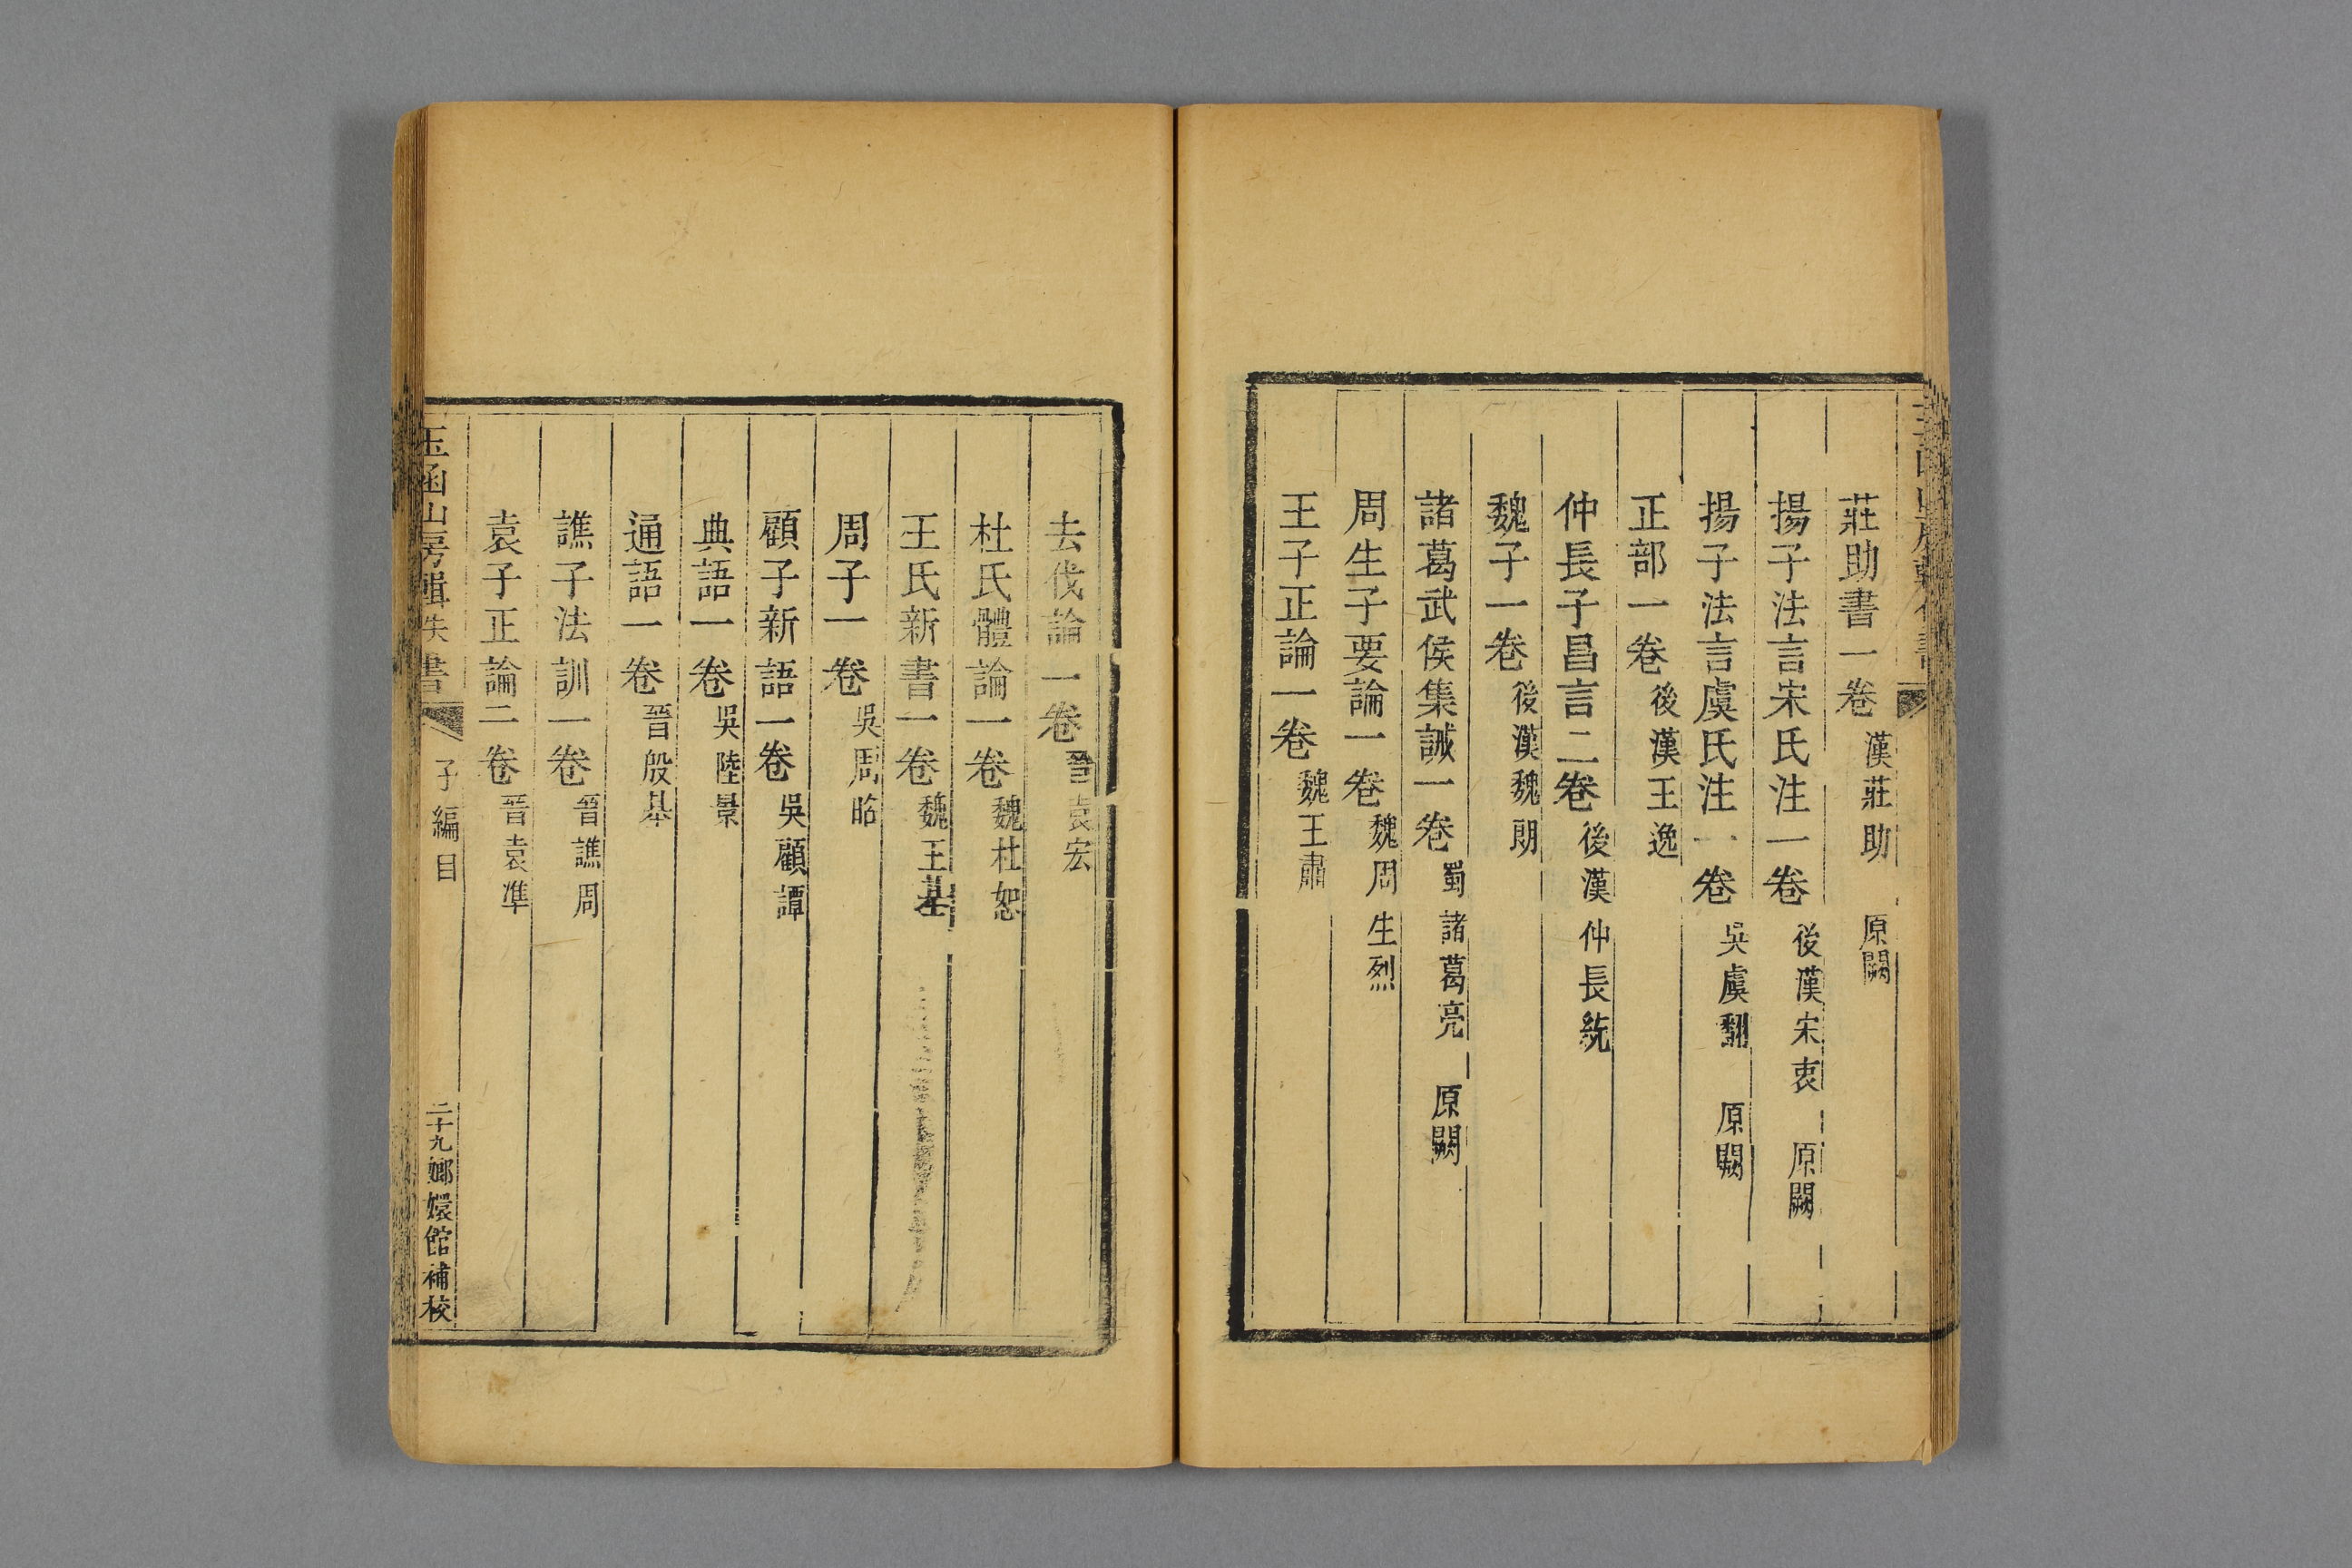 莊助書一卷 漢莊助 原闕
揚子法言宋氏注一卷 後漢宋衷 原闕
揚子法言虞氏注一卷 吳虞翻 原闕
正部一卷 後漢王逸
仲長子昌言二卷 後漢仲長統
魏子一卷 後漢魏朗
諸葛武侯集誡一卷 蜀諸葛亮 原闕
周生子要論一卷 魏周生烈
王子正論一卷 魏王肅
去伐論一卷 晉袁宏
杜氏體論一卷 魏杜恕
王氏新書一卷 魏王基
周子一卷 吳周昭
顧子新語一卷 吳顧譚
典語一卷 吳陸景
通語一卷 晉殷基
譙子法訓一卷 晉譙周
袁子正論二卷 晉袁準
玉函山房輯佚書 子編目 二十九 嫏嬛館補校